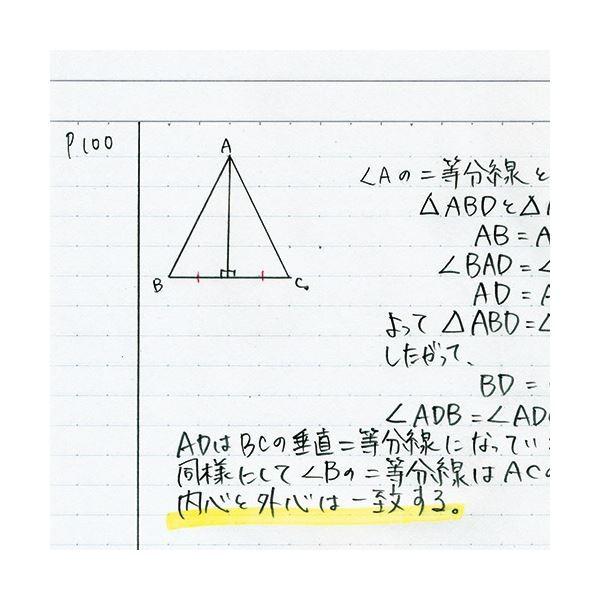 P100
A
B
C
∠Aの二等分線と
△ABDと△A
AB=A
∠BAD=∠
AD=A
よって △ABD=∠
したがって、
BD=
∠ADB=∠AD
ADはBCの垂直二等分線になってい
同様にして∠Bの二等分線はACの
内心と外心は一致する。